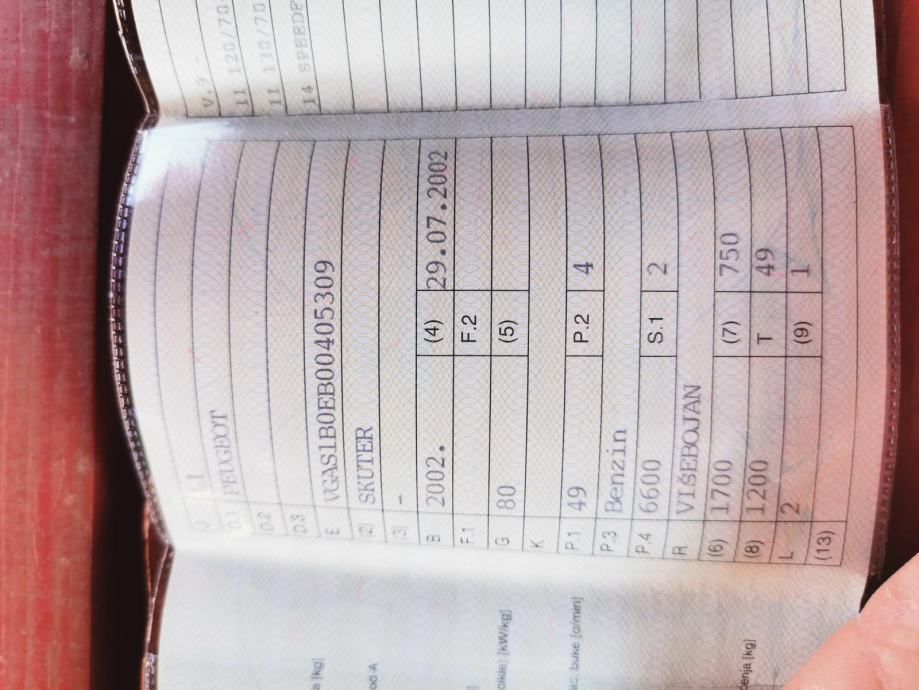 V.9 -
11 120/70
11 130/70
14 SPEED
J L1
D.1 PEUGEOT
D.2
D.3
E VGAS1B0EB00405309
(2) SKUTER
(3) -
B 2002. (4) 29.07.2002
F.1 F.2
G 80 (5)
K
P.1 49 P.2 4
P.3 Benzin
P.4 6600 S.1 2
R VIŠEBOJAN
(6) 1700 (7) 750
(8) 1200 T 49
L 2 (9) 1
(13)
a [kg]
od A
]
cikle) [kW/kg]
buke [o/min]
enja [kg]